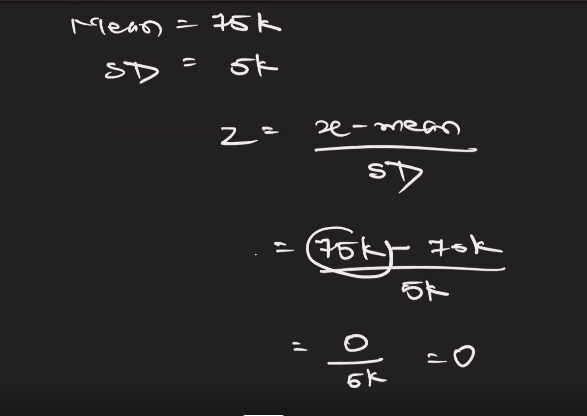 Mean = 75k
SD = 5k
Z = x - mean
SD
= 75k - 70k
5k
= 0
5k
= 0